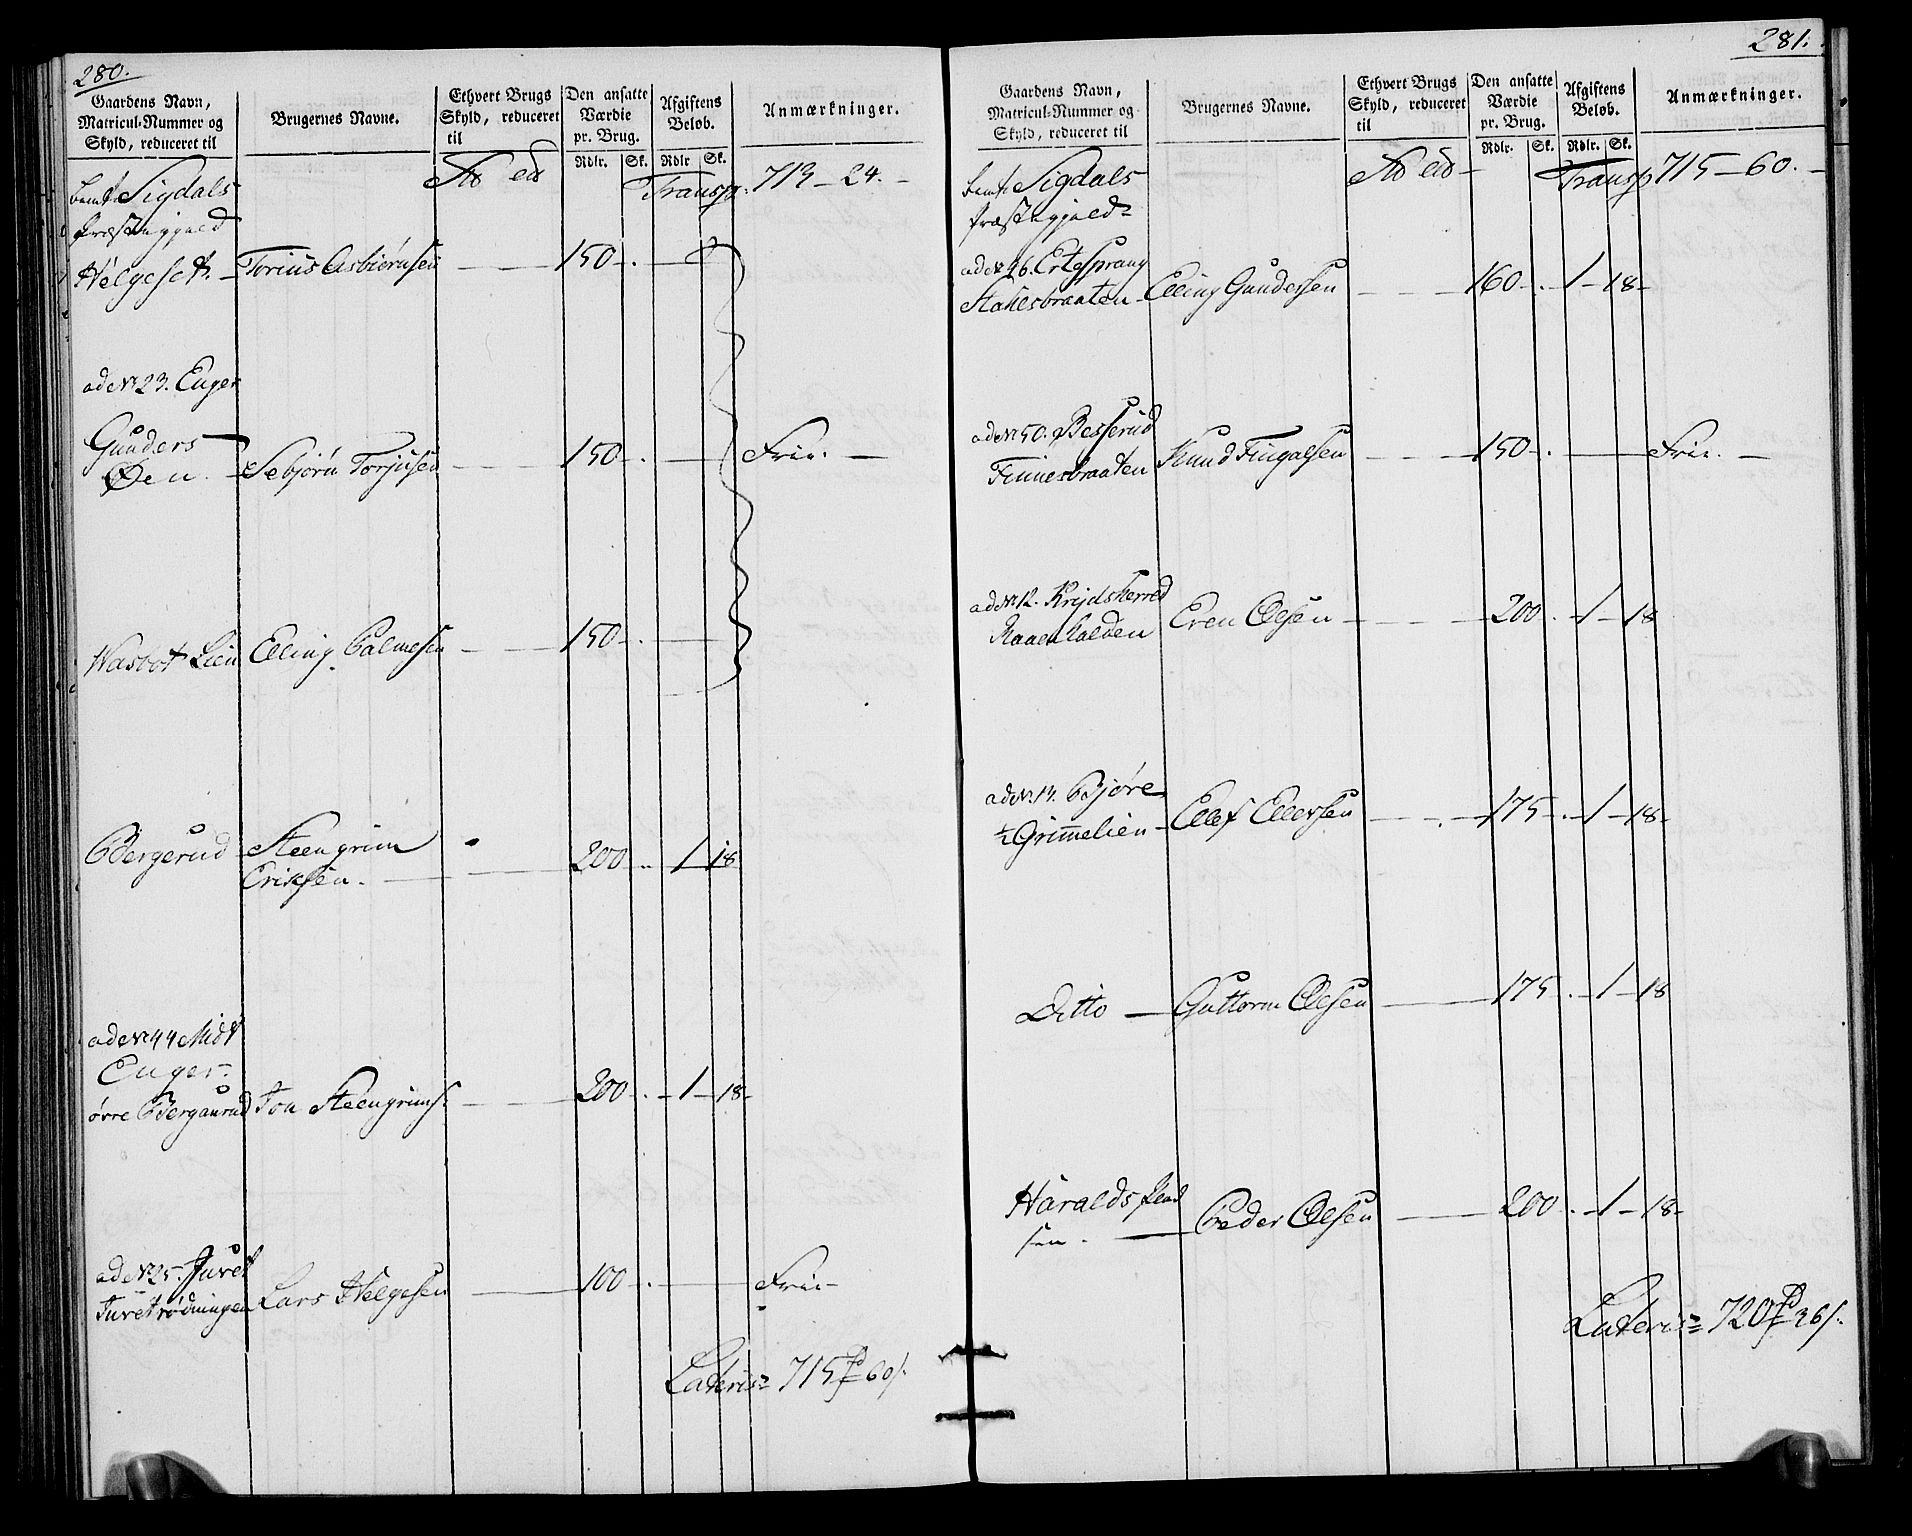 280.
Gaardens Navn,
Matricul-Nummer og
Skyld, reduceret til
Brugernes Navne.
Ethvert Brugs
Skyld, reduceret
til
Den ansatte
Værdie
pr. Brug.
Rdlr. Sk.
Afgiftens
Beløb.
Rdlr Sk.
Anmærkninger.
Sigdals
Præstegjæld
Transp: 713 - 24. -
Helgeset. - Torius Asbiørnsen 150 - .
ad No 23. Enger
Gunders
Øen. - Sebjørn Torjusen 150 - . Frie. -
Wasbot Lien Elling Palmesen 150 - .
Bergerud Steengrim
Eriksen. - 200 .. 1 18
ad No 44 Midt
Enger -
øvre Berganrud Jon Steengrims. 200 . - 1 - 18 -
ad No 25. Juvet
Juvetrødningen Lars Helgesen 100 - . Frie -
Lateris 715 60
281.
Gaardens Navn,
Matricul-Nummer og
Skyld, reduceret til
Brugernes Navne.
Ethvert Brugs
Skyld, reduceret
til
Den ansatte
Værdie
pr. Brug.
Rdlr. Sk.
Afgiftens
Beløb.
Rdlr. Sk.
Anmærkninger.
Sigdals
Præstegjæld
Transp 715 - 60. -
ad No 46. Ertesprang
Stakesbraaten - Elling Gundersen 160 - . 1 - 18 -
ad No 50. Besserud
Finnesbraaten Knud Fingalsen 150 - . Frie. -
ad No 12. Krydsherred
Even Olsen 200 . 1 - 18
ad No 14. Bjøre
½ Grimelien - Ellef Ellevsen 175 - . 1 - 18 -
Ditto - Guttorm Olsen 175 . - 1 - 18
Haralds Plad
sen. - Peder Olsen 200 . - 1 - 18 -
Lateris 720 36